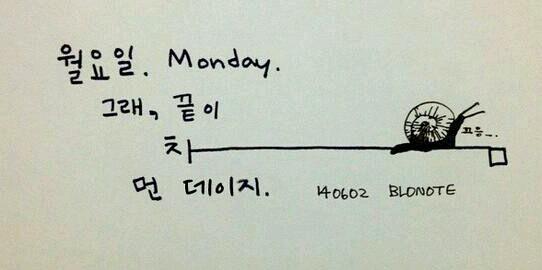 월요일. Monday.
그래, 끝이
참
끄응...
먼 데이지.
140602 BLONOTE